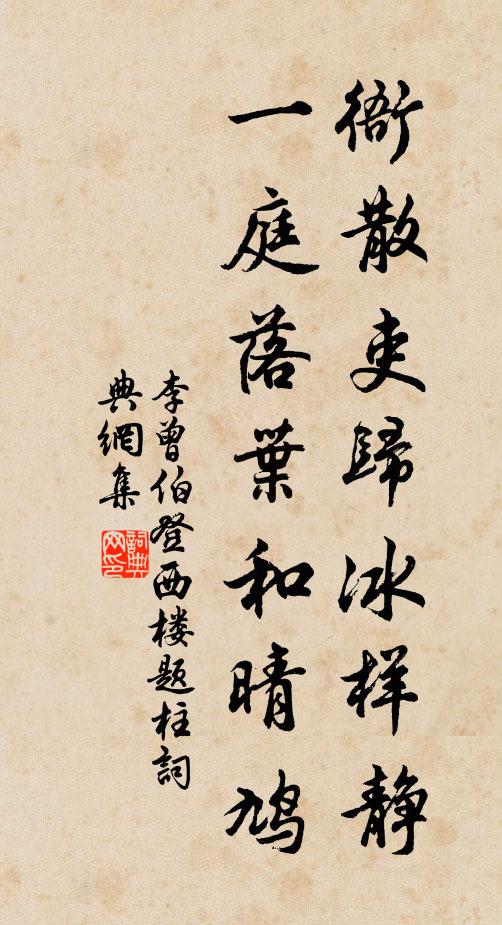 衙散吏歸冰样靜
一庭落葉和晴鳩
李曾伯登西楼题柱詞
典網集
詞典网印